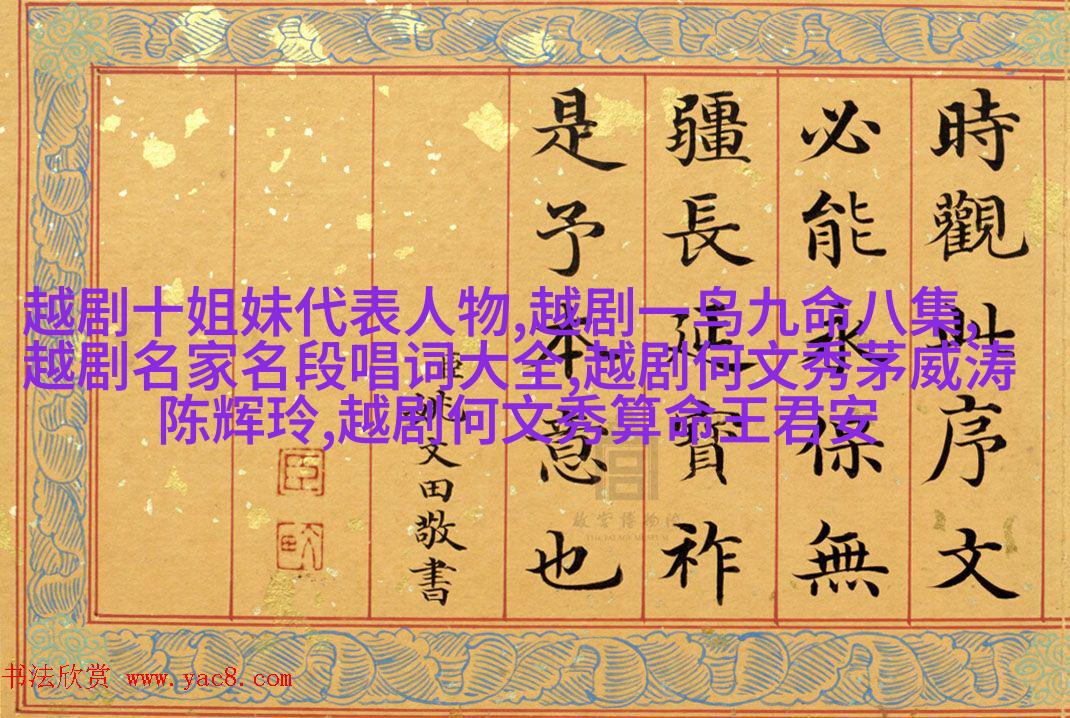 越剧十姐妹代表人物,越剧一鸟九命八集,
越剧名家名段唱词大全,越剧何文秀茅威涛
陈辉玲,越剧何文秀算命王君安
時觀此序文
必能永保無
疆長延寶祚
是予本意也
姚文田敬書
臣
故宫博物院
THE PALACE MUSEUM
书法欣赏 www.yac8.com